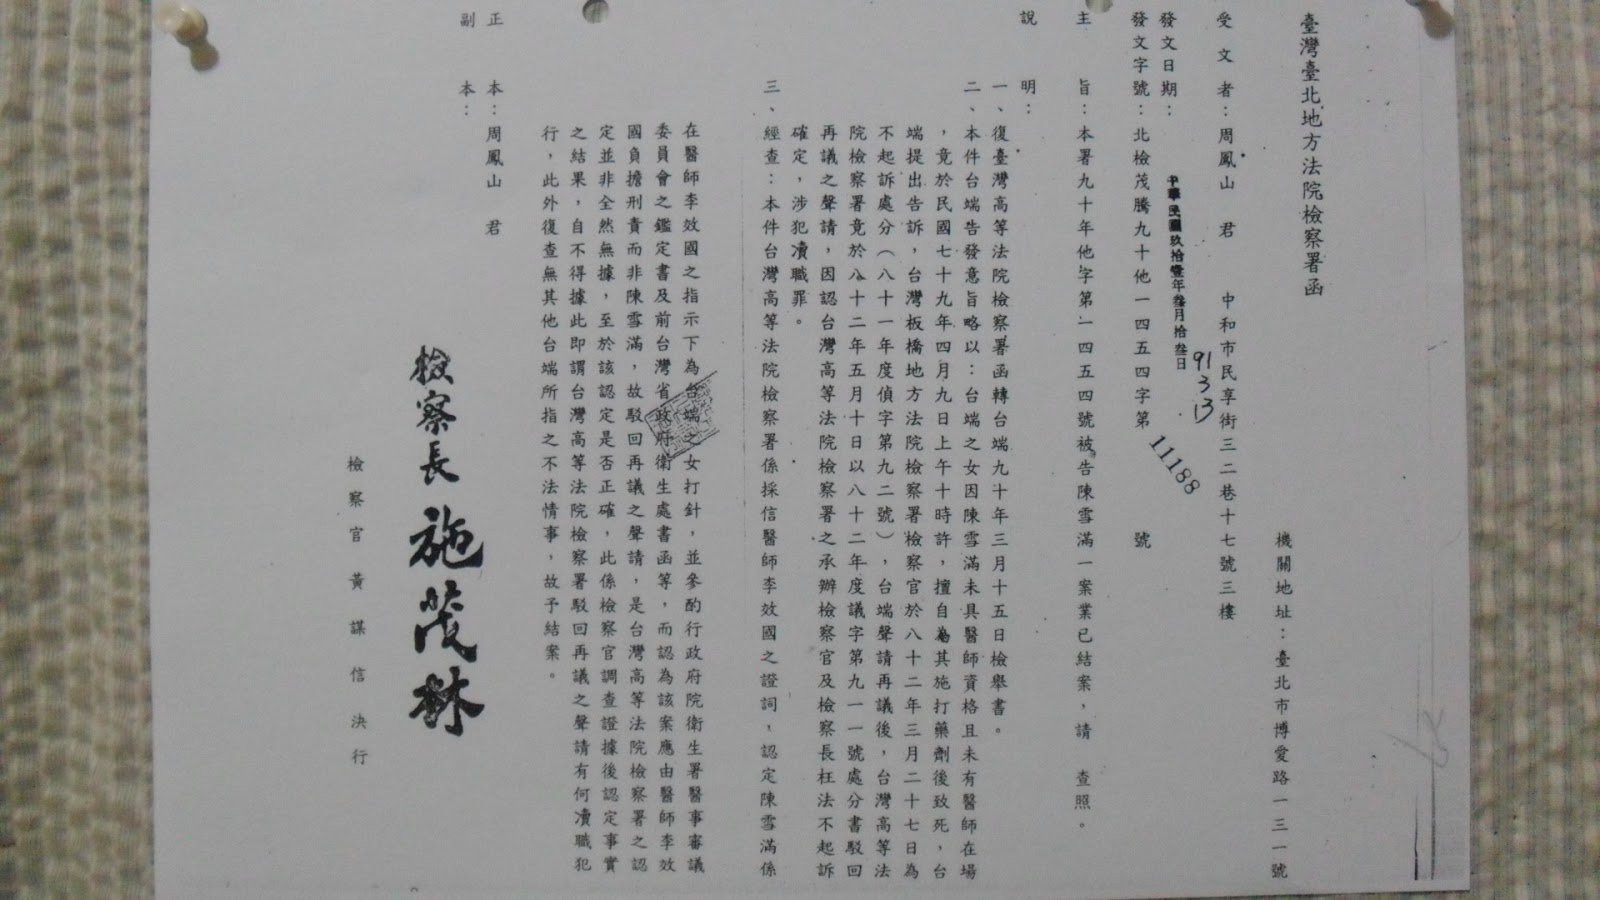 臺灣臺北地方法院檢察署函
機關地址：臺北市博愛路一三一號
受文者：周鳳山　君　　中和市民享街三二巷十七號三樓
發文日期：中華民國玖拾壹年叁月拾叁日
91 3 13
發文字號：北檢茂騰九十他一四五四字第11188號
主旨：本署九十年他字第一四五四號被告陳雪滿一案業已結案，請　查照。
說明：
一、復臺灣高等法院檢察署函轉台端九十年三月十五日檢舉書。
二、本件台端告發意旨略以：台端之女因陳雪滿未具醫師資格且未有醫師在場
，竟於民國七十九年四月九日上午十時許，擅自為其施打藥劑後致死，台
端提出告訴，台灣板橋地方法院檢察署檢察官於八十二年三月二十七日為
不起訴處分（八十一年度偵字第九二號），台端聲請再議後，台灣高等法
院檢察署竟於八十二年五月十日以八十二年度議字第九一一號處分書駁回
再議之聲請，因認台灣高等法院檢察署之承辦檢察官及檢察長枉法不起訴
確定，涉犯瀆職罪。
三、經查：本件台灣高等法院檢察署係採信醫師李效國之證詞，認定陳雪滿係
在醫師李效國之指示下為台端之女打針，並參酌行政府院衛生署醫事審議
委員會之鑑定書及前台灣省政府衛生處書函等，而認為該案應由醫師李效
國負擔刑責而非陳雪滿，故駁回再議之聲請，是台灣高等法院檢察署之認
定並非全然無據，至於該認定是否正確，此係檢察官調查證據後認定事實
之結果，自不得據此即謂台灣高等法院檢察署駁回再議之聲請有何瀆職犯
行，此外復查無其他台端所指之不法情事，故予結案。
正本：周鳳山　君
副本：
檢察長　施茂林
檢察官　黃謀信　決行